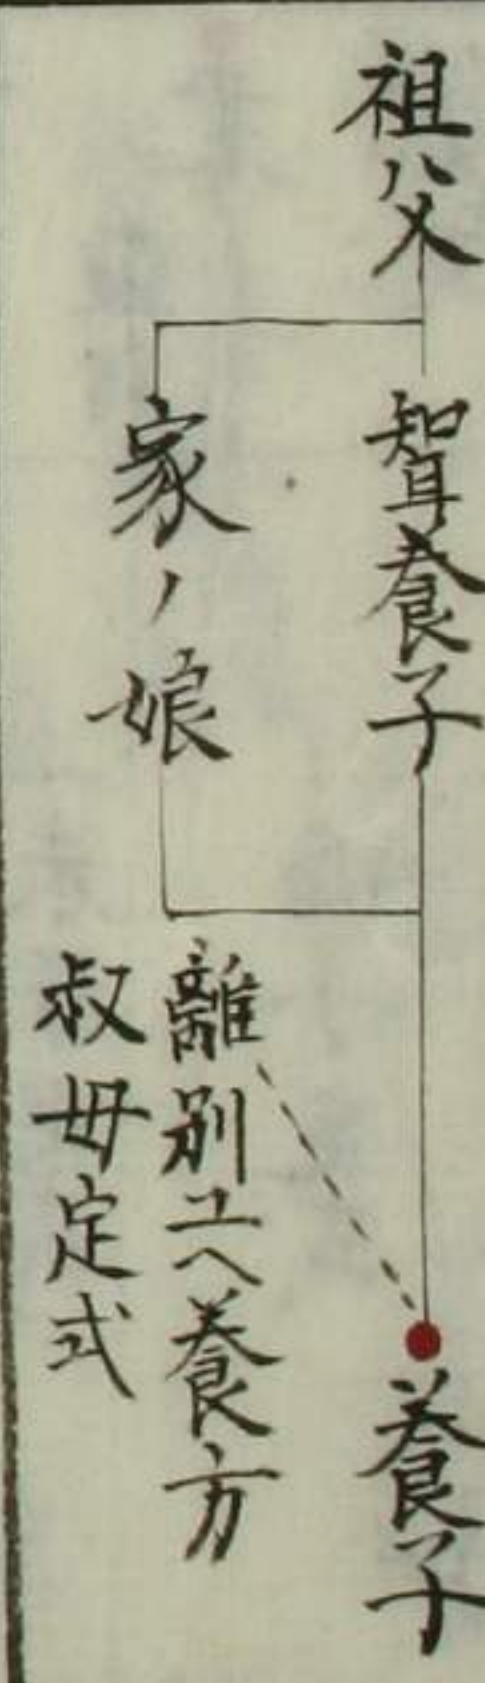 祖父
聟養子
養子
家ノ娘
離別ユヘ養方
叔母定式